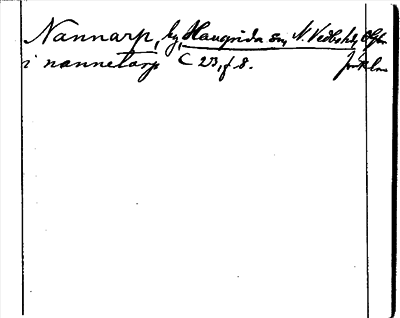 Nannarp, by, Haugrida sn, N. Vedbo hd, Ögtn
i nannetorp C 23, f 8.